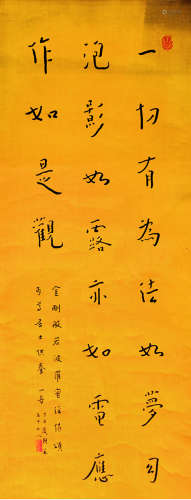 一切有為法如夢幻
泡影如露亦如電應
作如是觀
金剛般若波羅蜜經偈頌
居士供養 一音